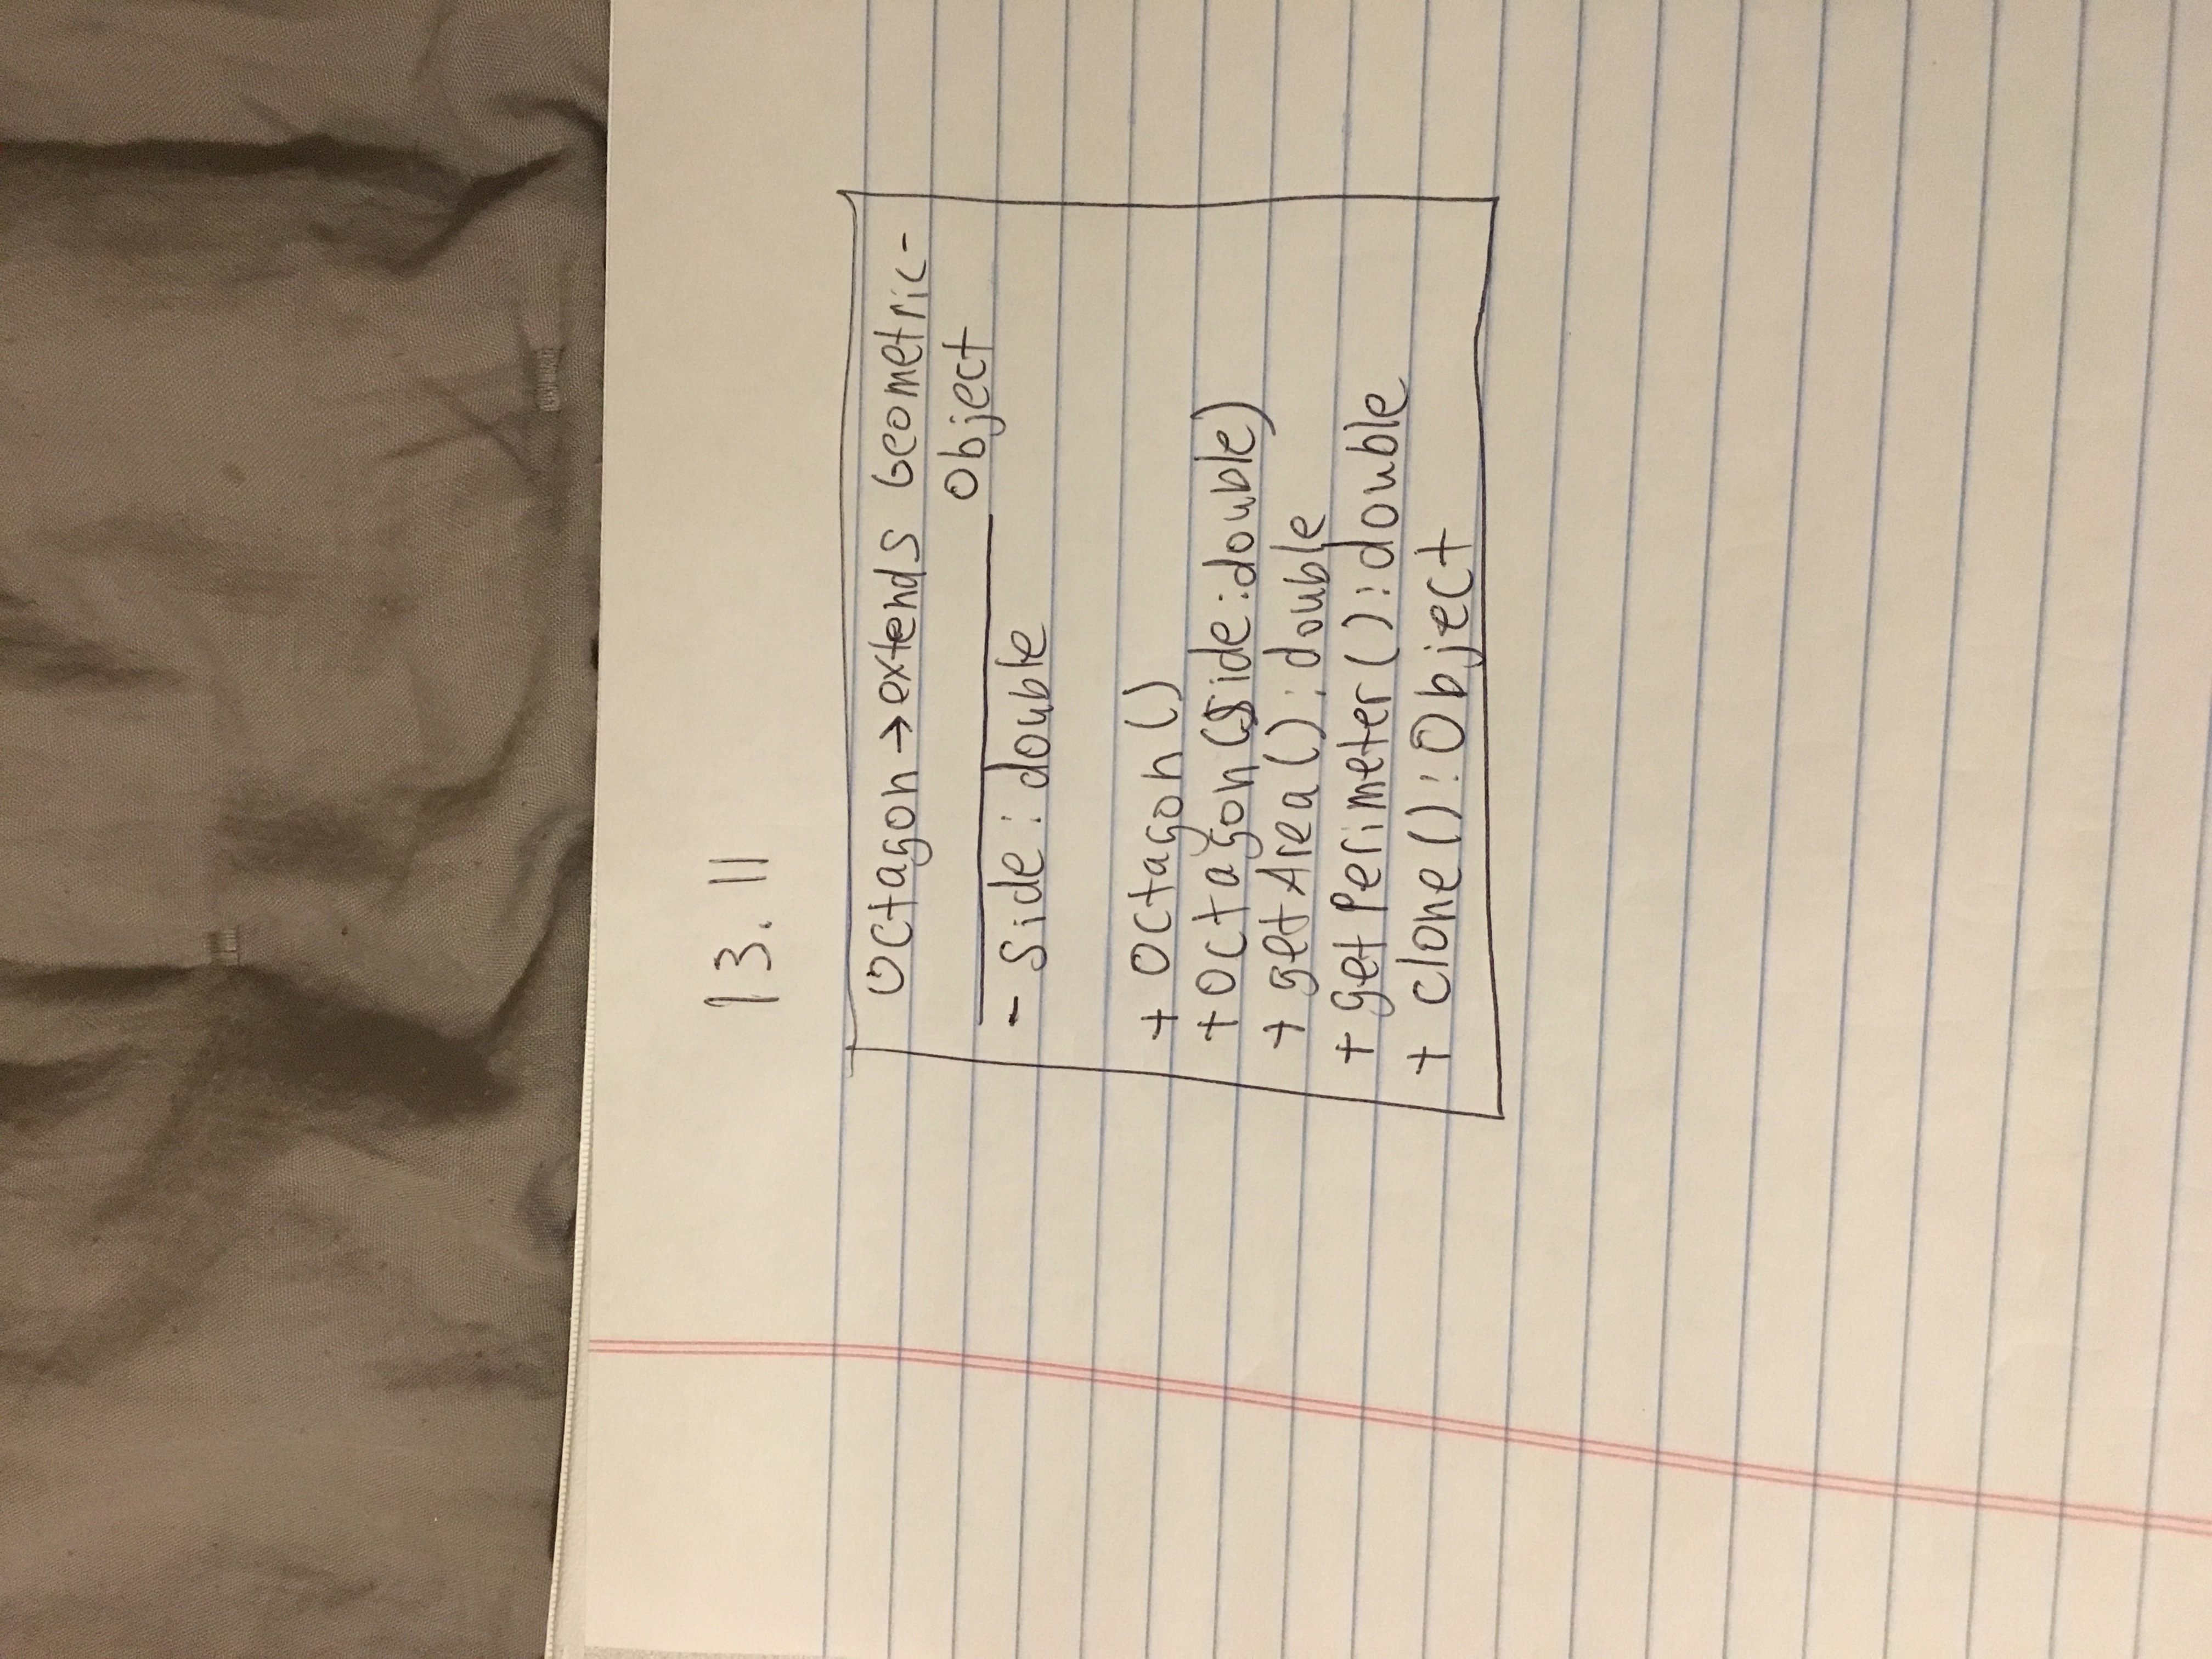 13.11
Octagon → extends Geometric-
Object
- side : double
+ Octagon()
+ Octagon(side:double)
+ getArea() : double
+ getPerimeter() : double
+ clone() : Object